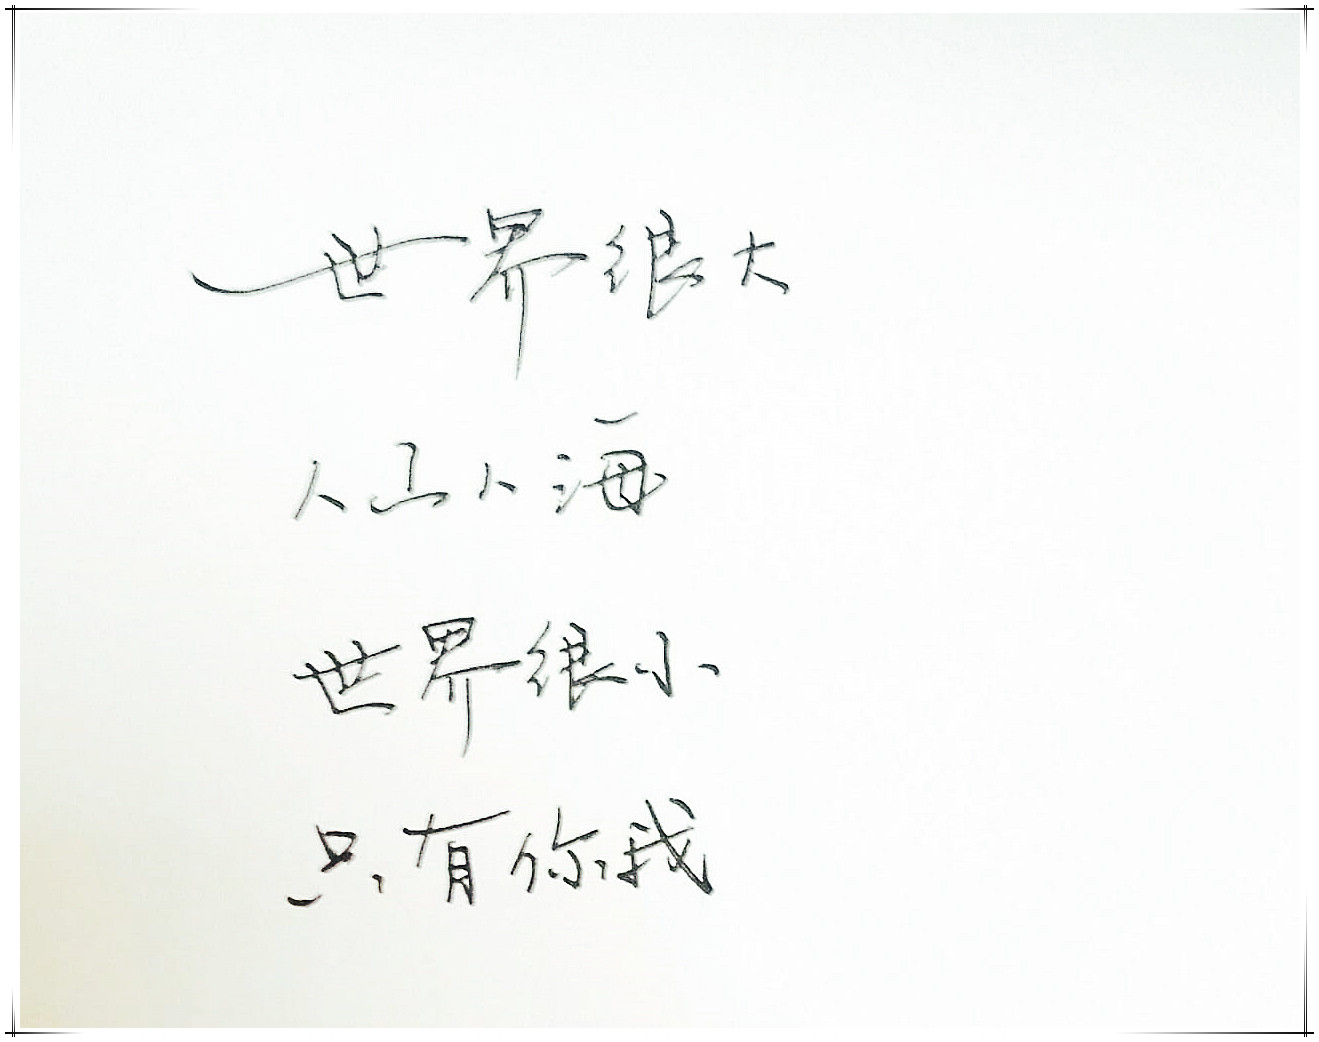 世界很大
人山人海
世界很小
只有你我